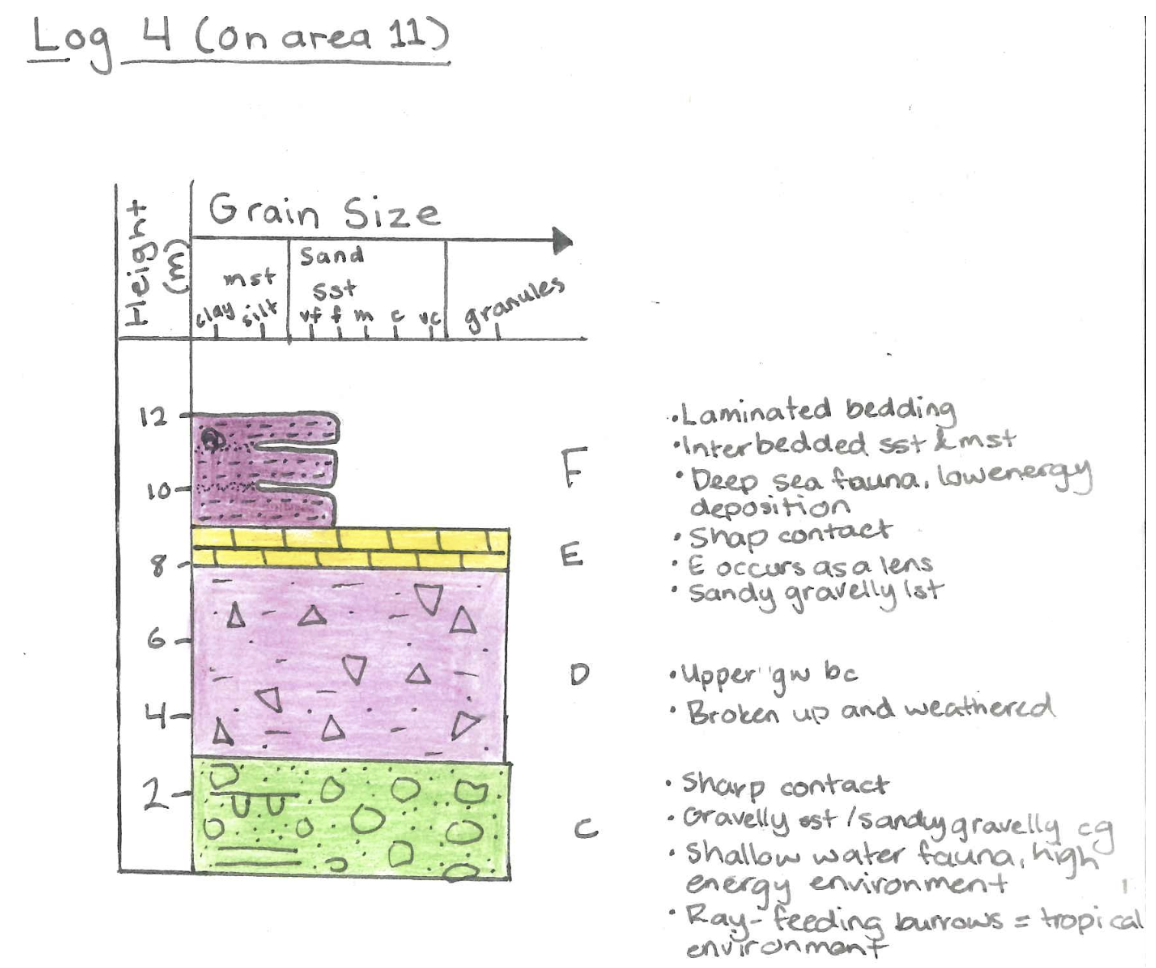 Log 4 (on area 11)
Height (m)
Grain Size
mst
Sand
sst
clay silt vf f m c vc granules
12
10
8
6
4
2
F
E
D
C
•Laminated bedding
•Interbedded sst & mst
•Deep sea fauna, low energy
deposition
•Shap contact
•E occurs as a lens
•Sandy gravelly lst
•Upper gw bc
•Broken up and weathered
•Sharp contact
•Gravelly sst / sandy gravelly cg
•Shallow water fauna, high
energy environment
•Ray-feeding burrows = tropical
environment